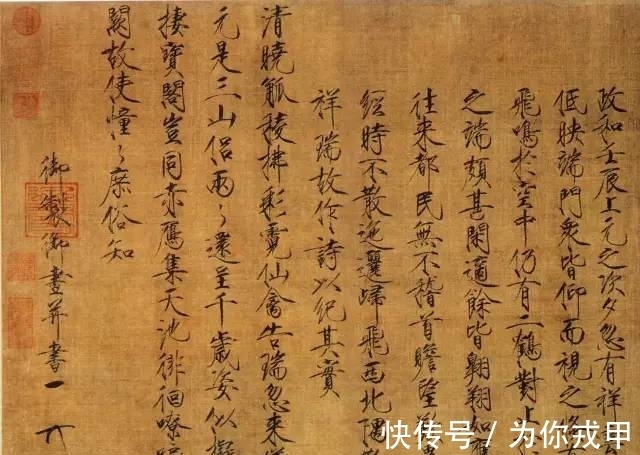 政和壬辰上元之次夕忽有祥
低映端門眾皆仰而視之倏
飛鳴於空中仍有二鶴對止
之端頗甚閑適餘皆翱翔如應
往来都民無不稽首瞻望歎
經時不散迤邐歸飛西北隅
祥瑞故作詩以紀其實
清曉觚稜拂彩霓仙禽告瑞忽来
元是三山侶兩〻還呈千歲姿似擬
棲寶閣豈同赤鴈集天池徘徊嘹
闕故使憧〻庶俗知
御製御畫并書
快传号 / 为你戎甲